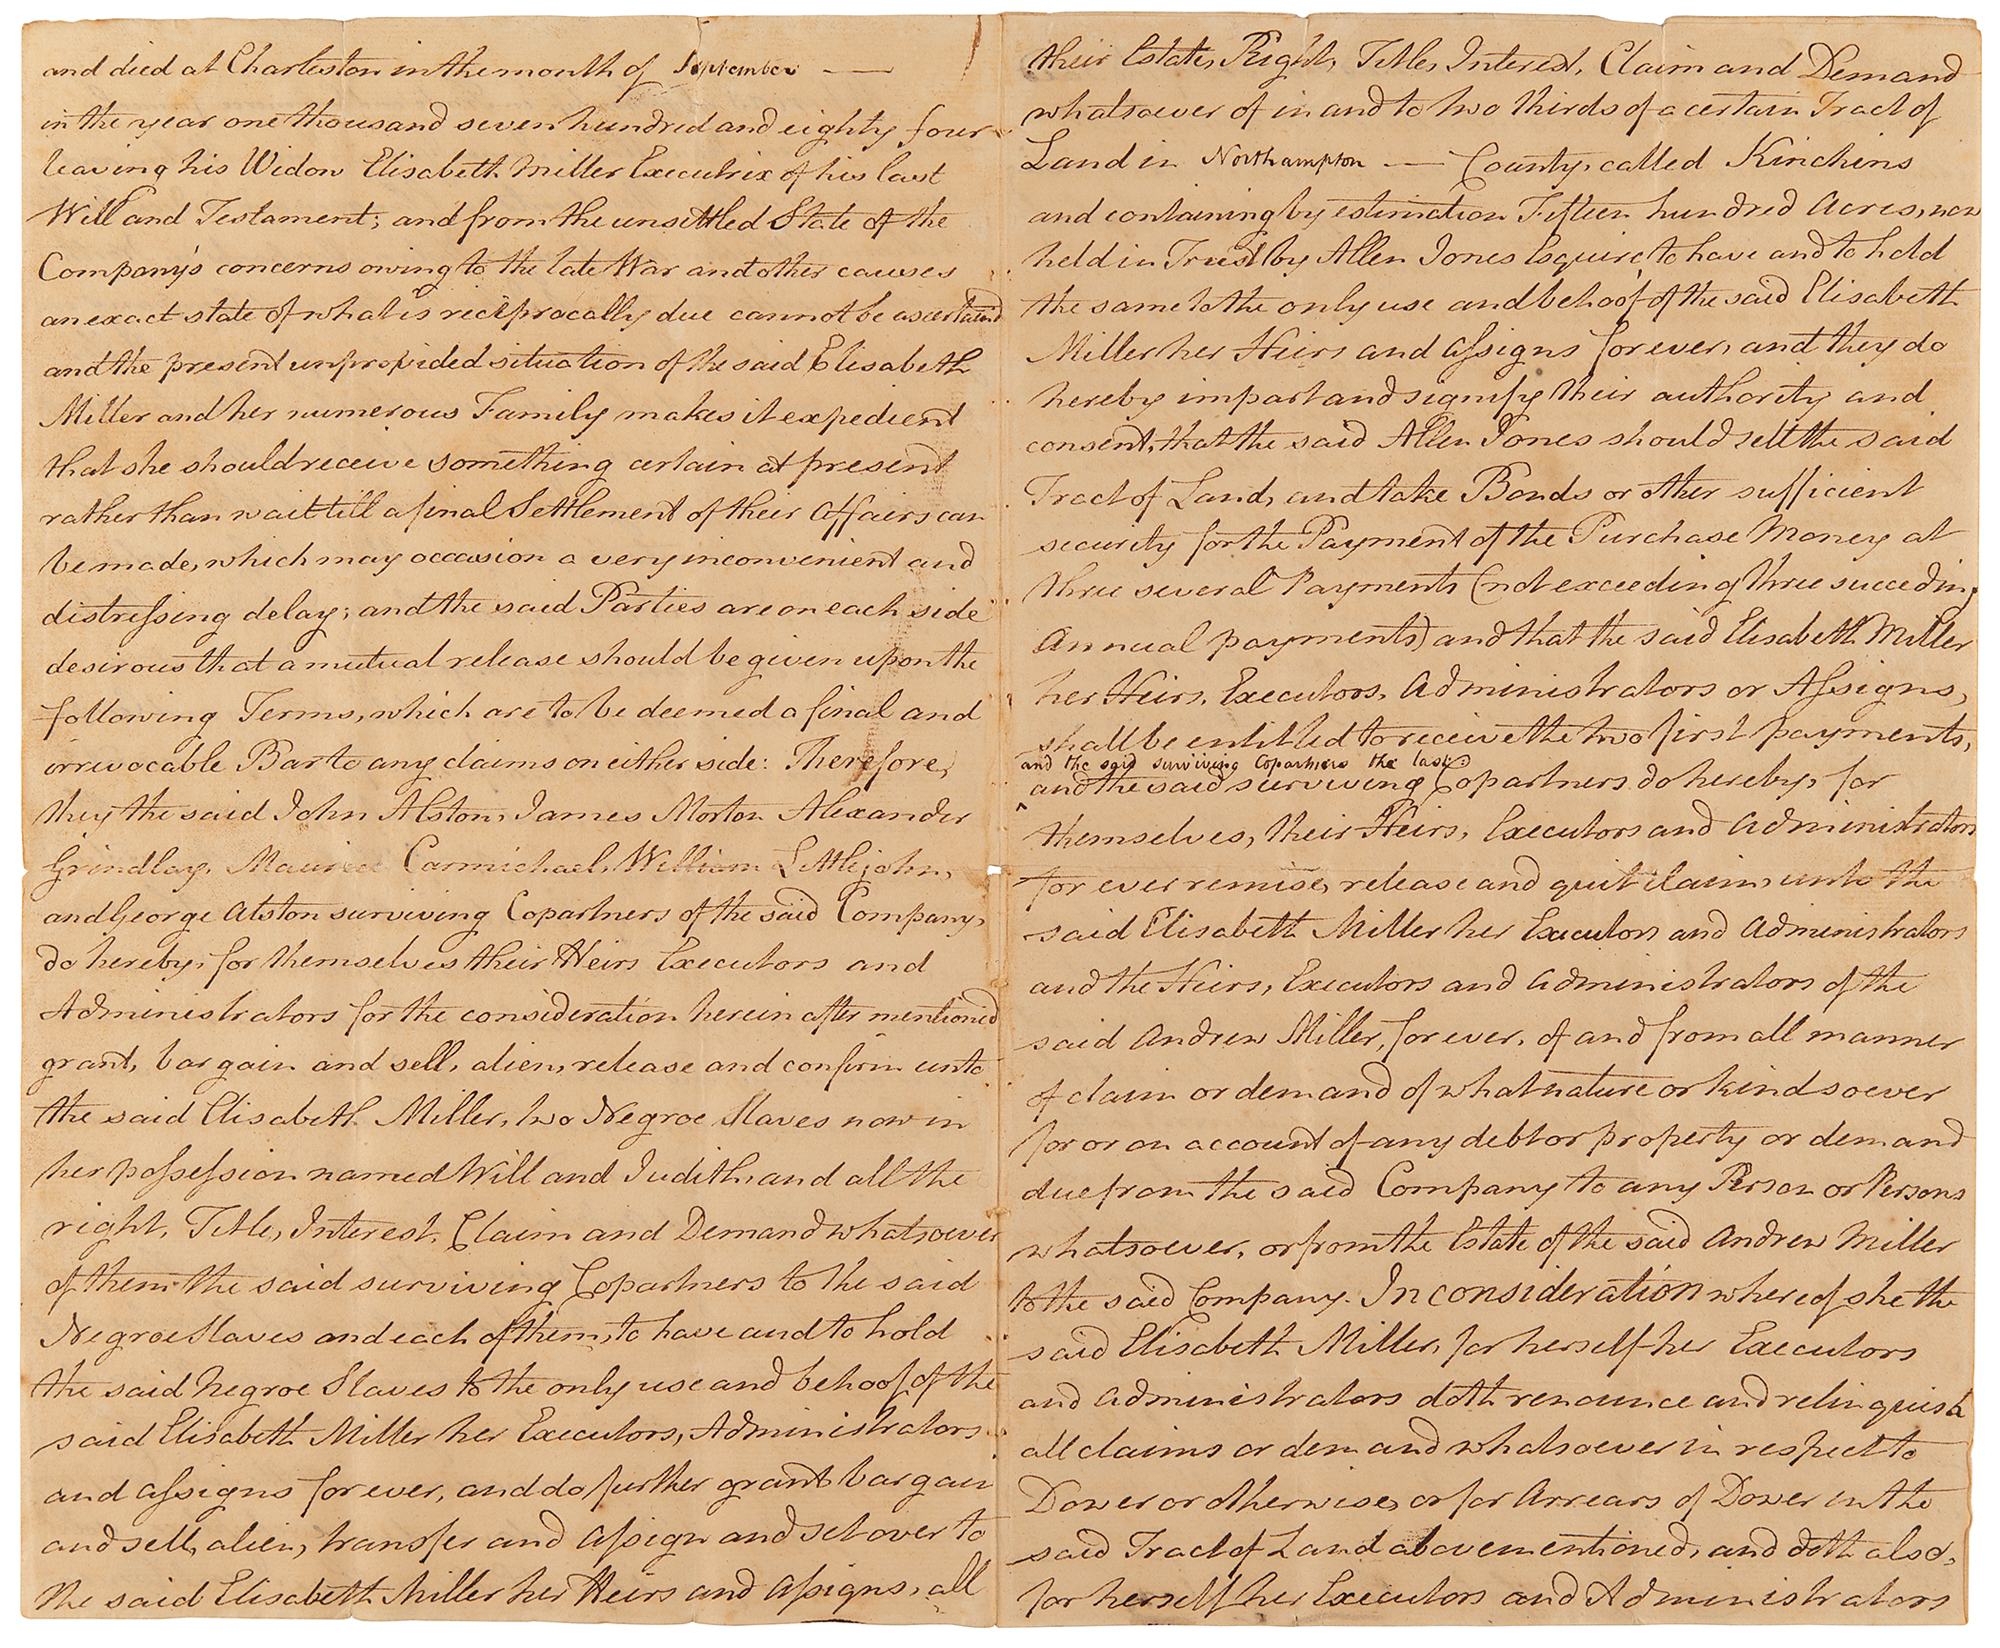 and died at Charleston in the month of September —
in the year one thousand seven hundred and eighty four
leaving his Widow Elisabeth Miller Executrix of his last
Will and Testament; and from the unsettled State of the
Company's concerns owing to the late War and other causes
an exact state of what is reciprocally due cannot be ascertained
and the present unprovided situation of the said Elisabeth
Miller and her numerous Family makes it expedient
that she should receive something certain at present
rather than wait till a final Settlement of their Affairs can
be made, which may occasion a very inconvenient and
distressing delay; and the said Parties are on each side
desirous that a mutual release should be given upon the
following Terms, which are to be deemed a final and
irrevocable Bar to any claims on either side: Therefore,
they the said John Alston, James Morton Alexander
Grindlay, Maurice Carmichael, William Littlejohn,
and George Alston surviving Copartners of the said Company,
do hereby, for themselves their Heirs Executors and
Administrators for the consideration herein after mentioned
grant, bargain and sell, alien, release and confirm unto
the said Elisabeth Miller, two Negroe Slaves now in
her possession named Will and Judith, and all the
right, Title, Interest, Claim and Demand whatsoever
of them the said surviving Copartners to the said
Negroe Slaves and each of them, to have and to hold
the said Negroe Slaves to the only use and behoof of the
said Elisabeth Miller her Executors, Administrators
and Assigns for ever, and do further grant bargain
and sell, alien, transfer and Assign and set over to
the said Elisabeth Miller her Heirs and Assigns, all
their Estate, Right, Title, Interest, Claim and Demand
whatsoever of in and to two thirds of a certain Tract of
Land in Northampton — County, called Kinchins
and containing by estimation Fifteen hundred Acres, now
held in Trust by Allen Jones Esquire, to have and to hold
the same to the only use and behoof of the said Elisabeth
Miller her Heirs and Assigns for ever, and they do
hereby impart and signify their authority and
consent, that the said Allen Jones should sell the said
Tract of Land, and take Bonds or other sufficient
security for the Payment of the Purchase Money at
three several Payments (not exceeding three succeeding
Annual payments) and that the said Elisabeth Miller
her Heirs, Executors, Administrators or Assigns,
shall be entitled to receive the two first payments,
and the said surviving Copartners the last
and the said surviving Copartners do hereby, for
themselves, their Heirs, Executors and Administrators
for ever remise, release and quit claim, unto the
said Elisabeth Miller her Executors and Administrators
and the Heirs, Executors and Administrators of the
said Andrew Miller, for ever, of and from all manner
of claim or demand of what nature or kind soever
for or on account of any debt or property or demand
due from the said Company to any Person or Persons
whatsoever, or from the Estate of the said Andrew Miller
to the said Company. In consideration whereof she the
said Elisabeth Miller, for herself her Executors
and Administrators doth renounce and relinquish
all claims or demand whatsoever in respect to
Dower or otherwise, or for Arrears of Dower in the
said Tract of Land abovementioned, and doth also,
for herself her Executors and Administrators